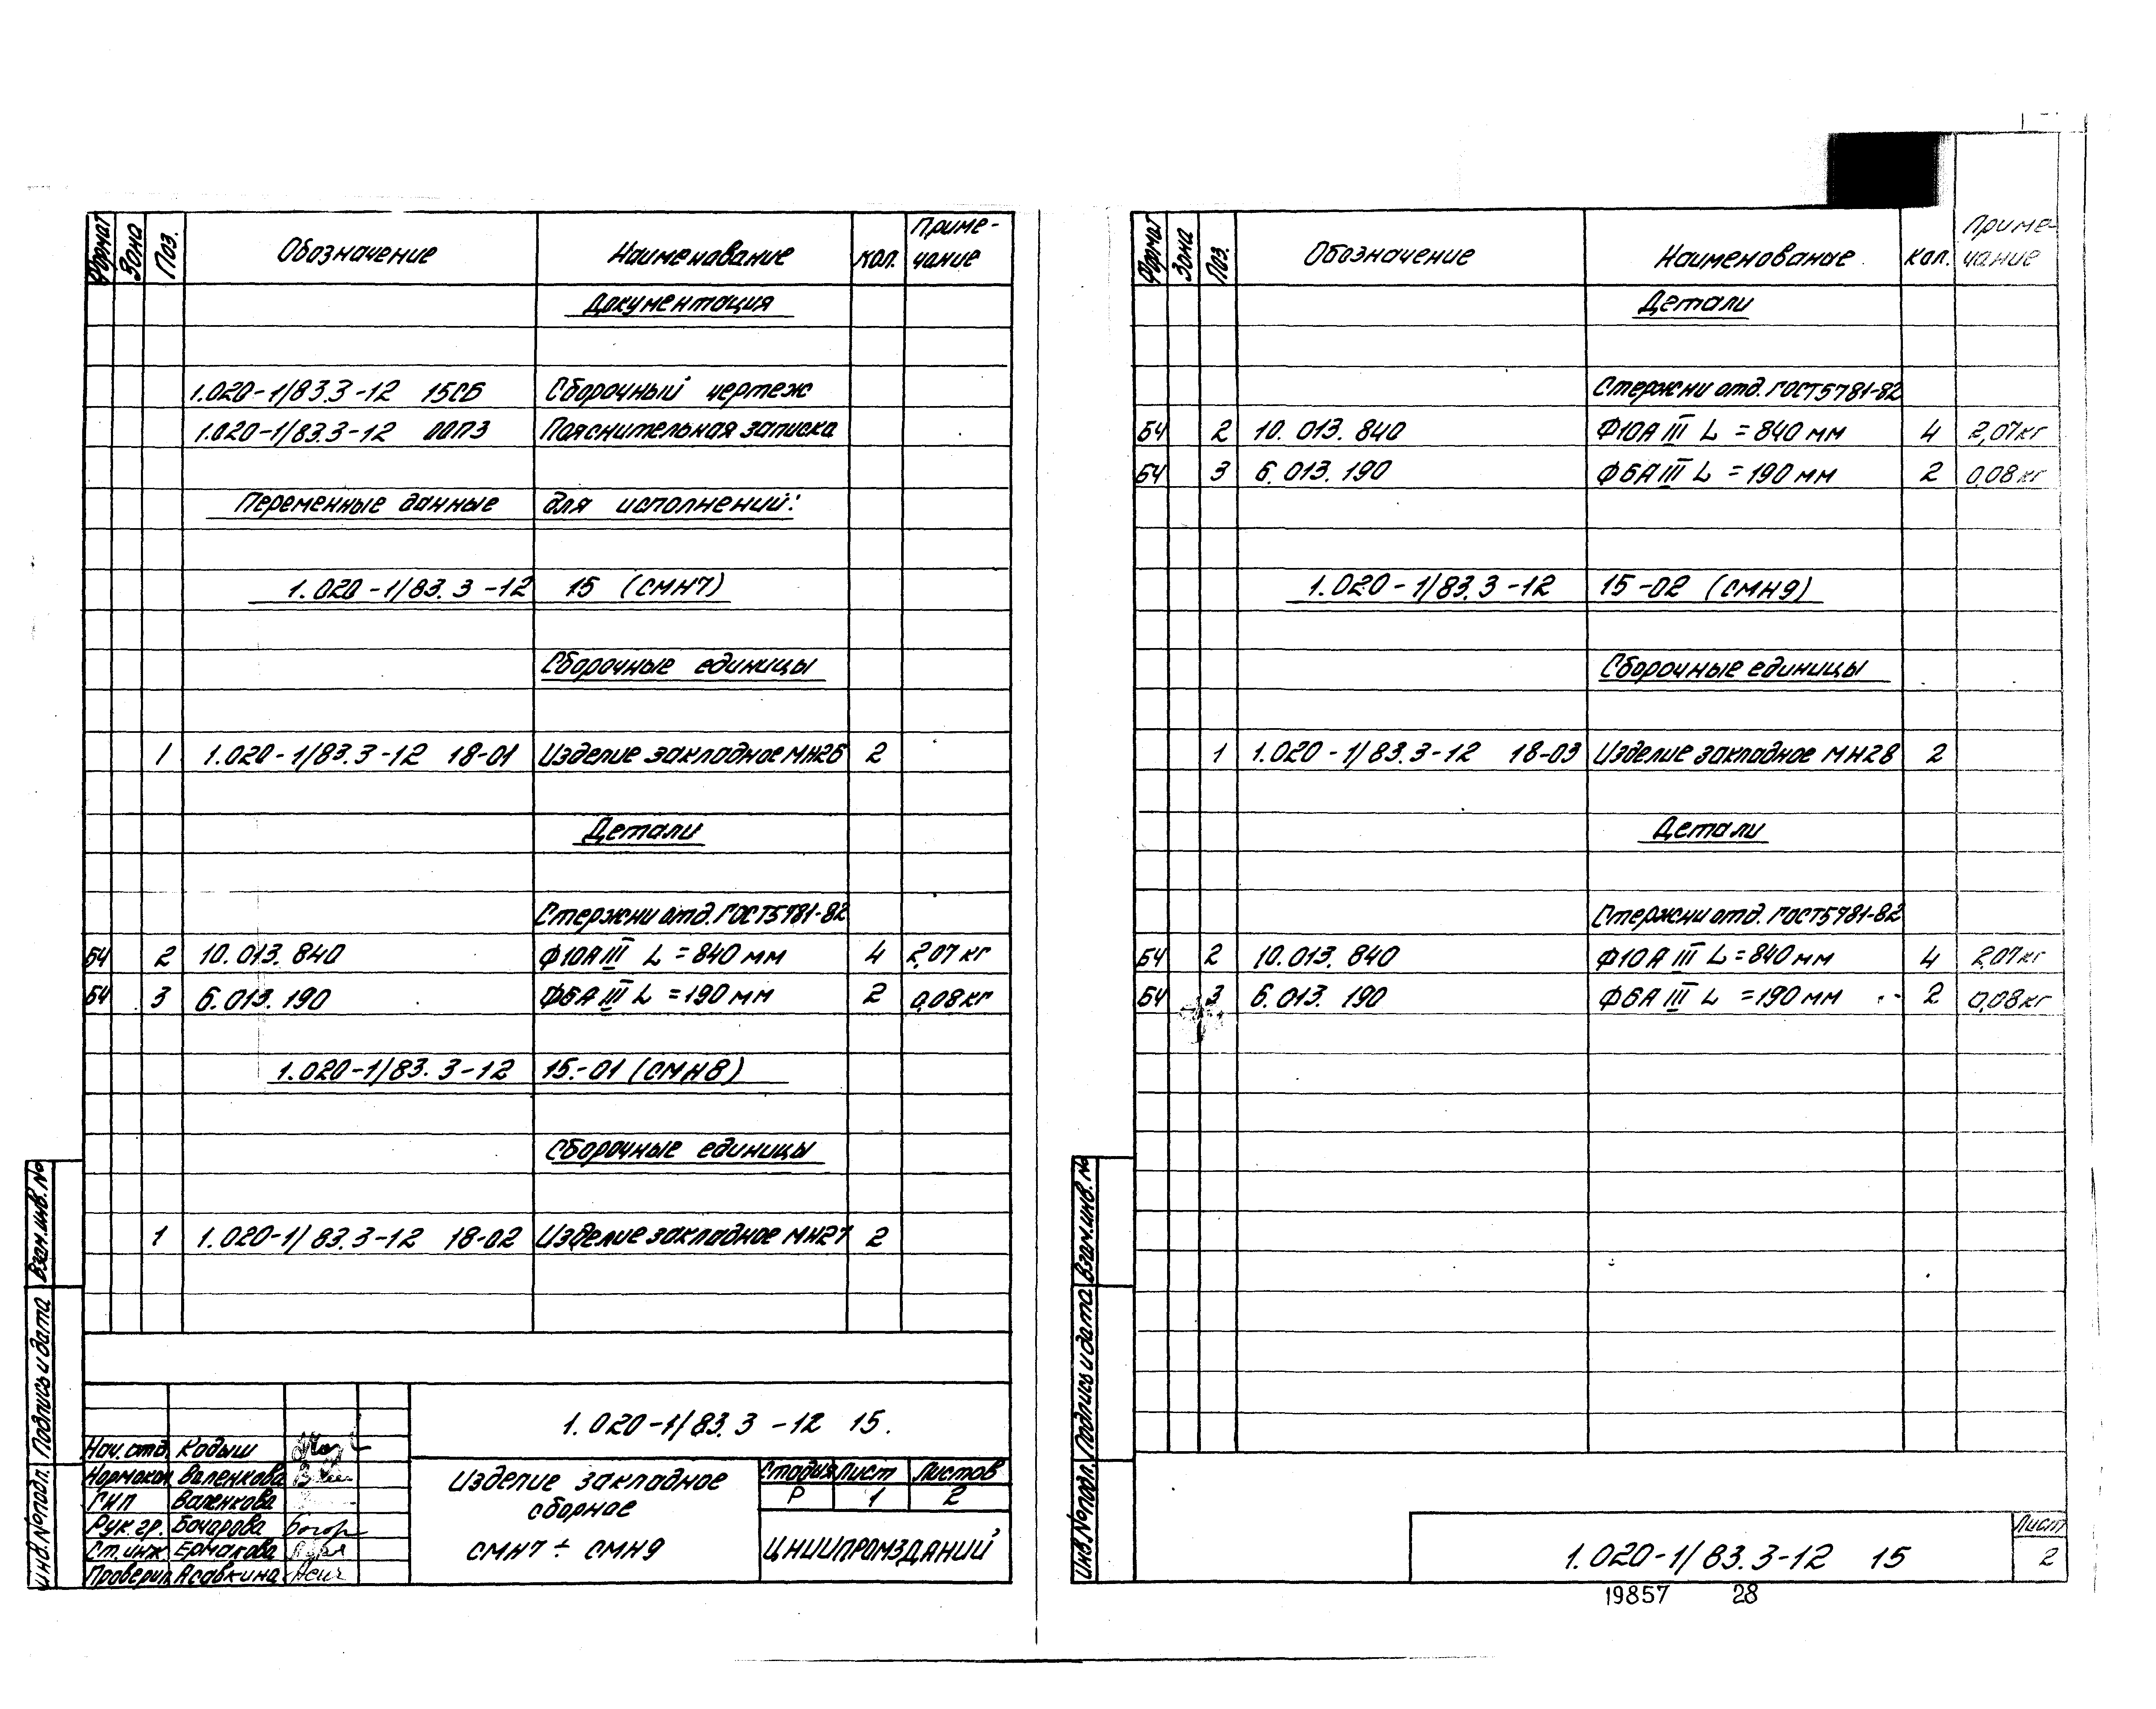 Формат Зона Поз. Обозначение Наименование Кол. Приме-
чание
Документация
1.020-1/83.3-12 15СБ Сборочный чертеж
1.020-1/83.3-12 00ПЗ Пояснительная записка
Переменные данные для исполнений:
1.020-1/83.3-12 15 (СМН7)
Сборочные единицы
1 1.020-1/83.3-12 18-01 Изделие закладное МН26 2
Детали
Стержни отд. ГОСТ5781-82
БЧ 2 10.013.840 Ф10АIII L=840 мм 4 2,07 кг
БЧ 3 6.013.190 Ф6АIII L=190 мм 2 0,08 кг
1.020-1/83.3-12 15-01 (СМН8)
Сборочные единицы
1 1.020-1/83.3-12 18-02 Изделие закладное МН27 2
Инв.№подл. Подпись и дата Взам.инв.№
1.020-1/83.3-12 15.
Нач.отд. Кодыш
Нормокон Валенкова
ГИП Валенкова
Рук.гр. Бочарова
Ст.инж Ермакова
Проверил Асавкина
Изделие закладное
сборное
СМН7 ÷ СМН9
Стадия Лист Листов
Р 1 2
ЦНИИПРОМЗДАНИЙ
Формат Зона Поз. Обозначение Наименование Кол. Приме-
чание
Детали
Стержни отд. ГОСТ5781-82
БЧ 2 10.013.840 Ф10АIII L=840 мм 4 2,07 кг
БЧ 3 6.013.190 Ф6АIII L=190 мм 2 0,08 кг
1.020-1/83.3-12 15-02 (СМН9)
Сборочные единицы
1 1.020-1/83.3-12 18-03 Изделие закладное МН28 2
Детали
Стержни отд. ГОСТ5781-82
БЧ 2 10.013.840 Ф10АIII L=840 мм 4 2,07 кг
БЧ 3 6.013.190 Ф6АIII L=190 мм 2 0,08 кг
Инв.№подл. Подпись и дата Взам.инв.№
1.020-1/83.3-12 15
Лист
2
19857 28